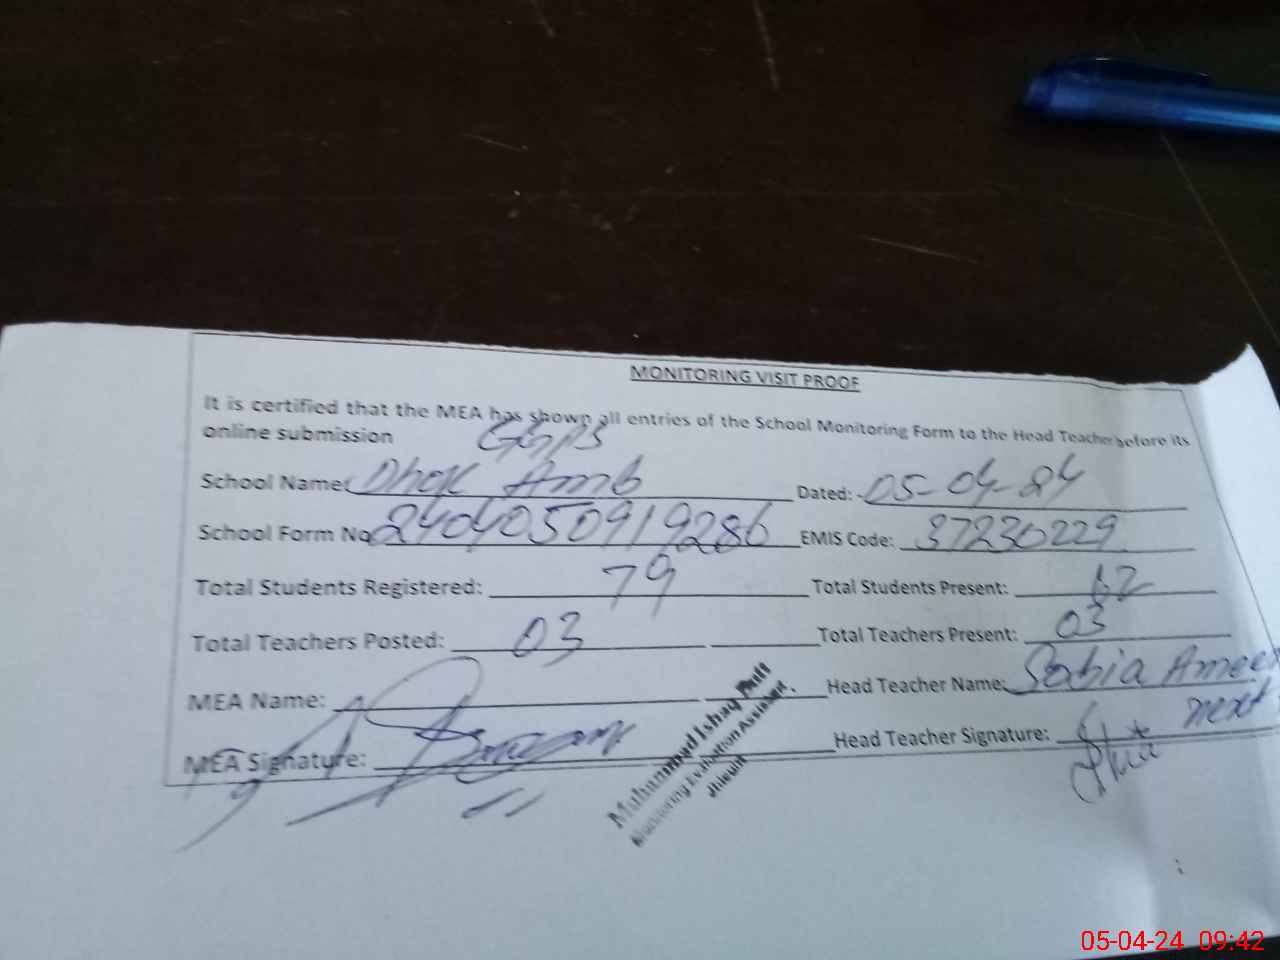 MONITORING VISIT PROOF
It is certified that the MEA has shown all entries of the School Monitoring Form to the Head Teacher before its
online submission
School Name: Dhok Amb Dated: 05-04-24
School Form No 2404050919286 EMIS Code: 37230229
Total Students Registered: 79 Total Students Present: 62
Total Teachers Posted: 03 Total Teachers Present: 03
MEA Name: Head Teacher Name: Sabia Ameer
MEA Signature: Head Teacher Signature:
Muhammad Ishaq Butt
Monitoring Evaluation Assistant
Jhelum
05-04-24 09:42